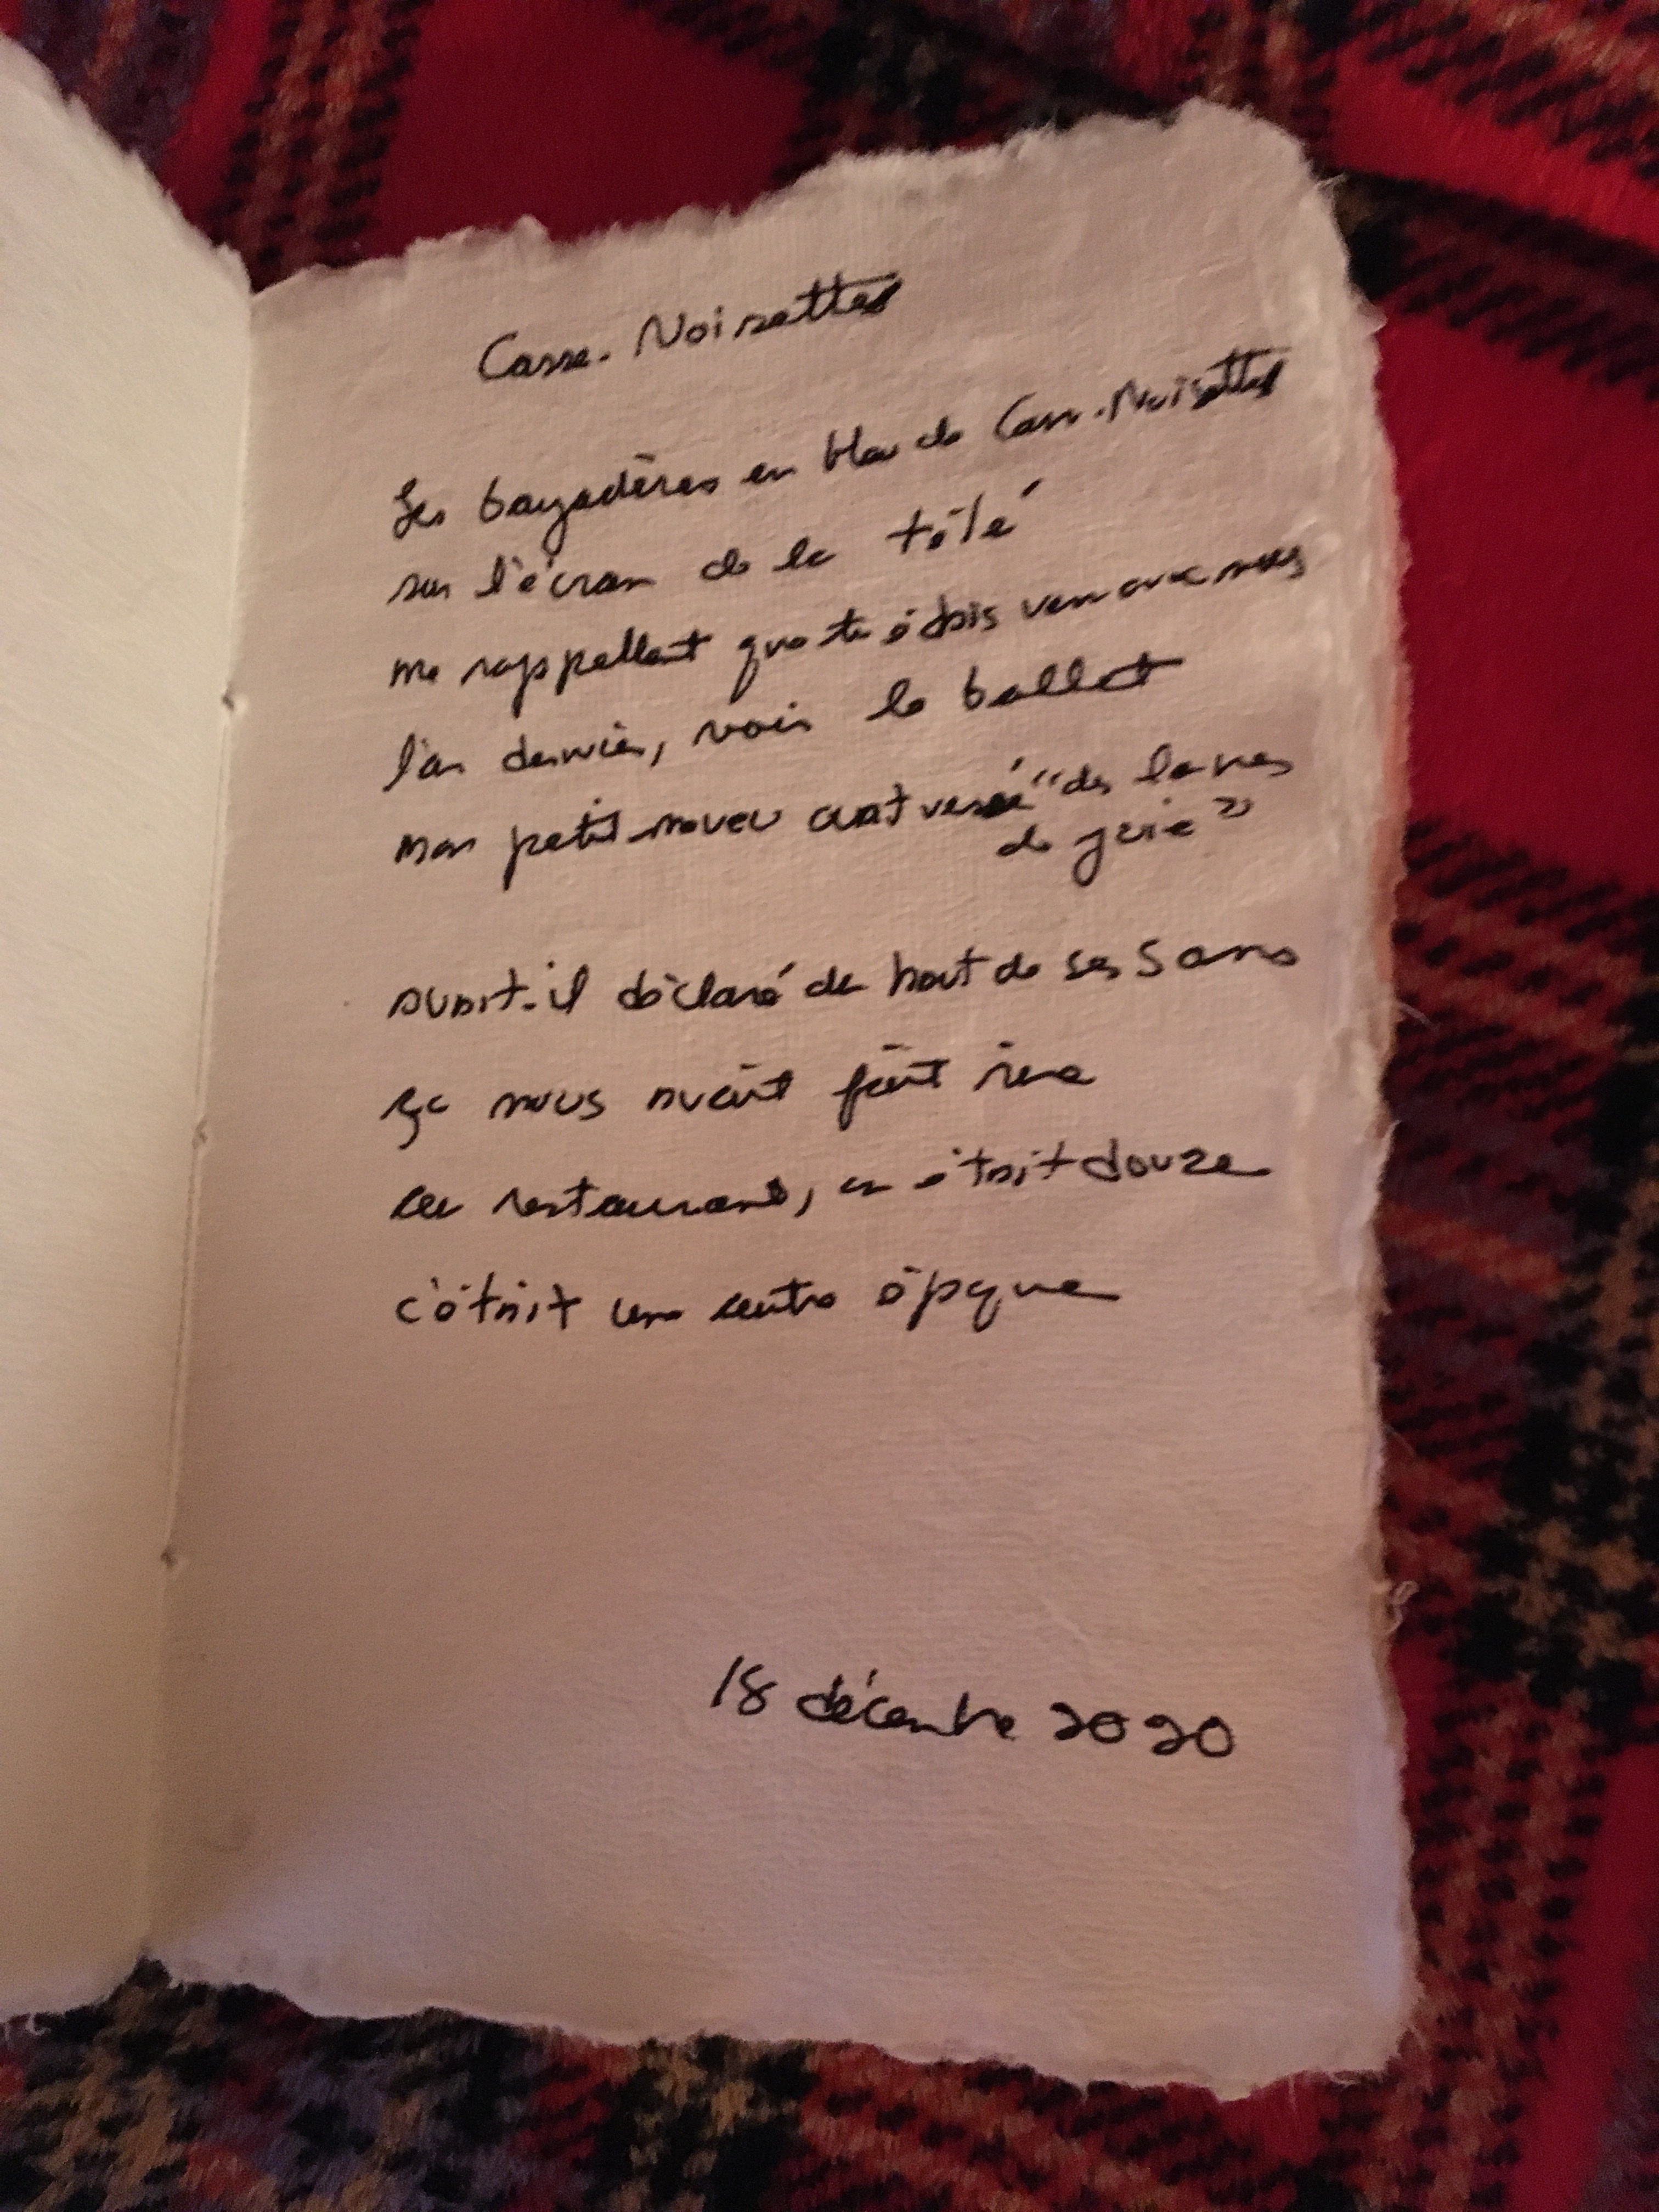 Casse-Noisette
Les bayadères en bleu de Casse-Noisette
sur l'écran de la télé
me rappellent que tu étais venu avec nous
l'an dernier, voir le ballet
mon petit-neveu avait versé "des larmes
de joie"
avait-il déclaré du haut de ses 5 ans
ça nous avait fait rire
au restaurant, on était douze
c'était une autre époque
18 décembre 2020